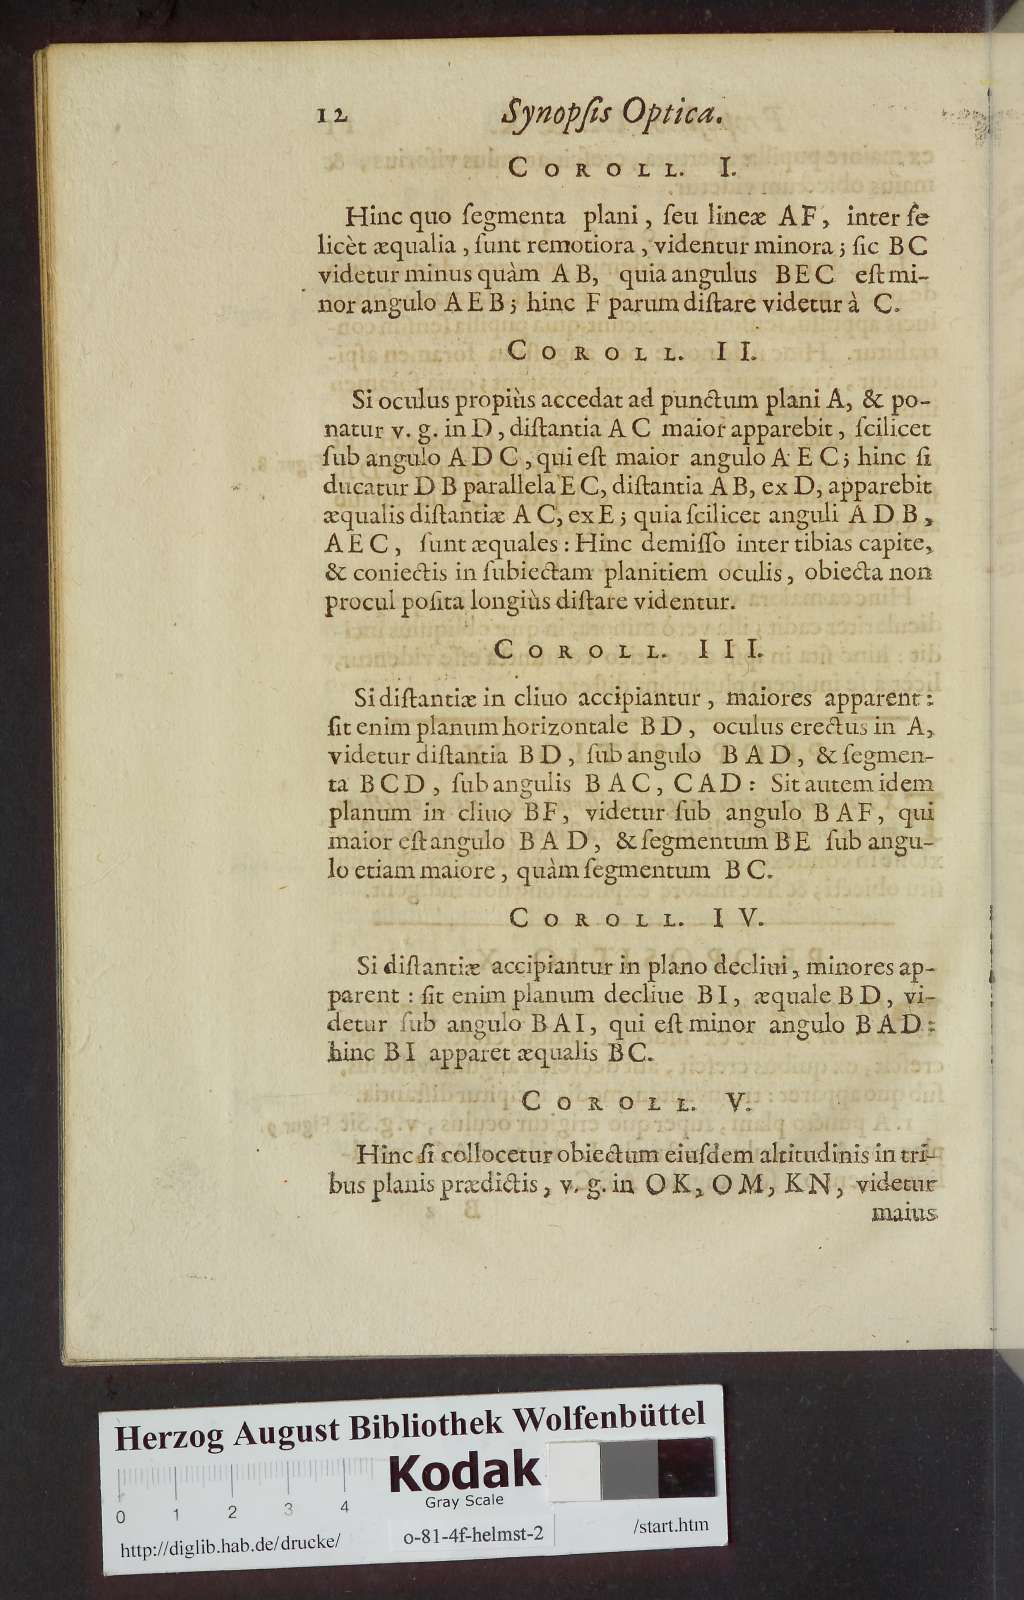 12 Synopſis Optica.
COROLL. I.
Hinc quo ſegmenta plani, ſeu lineæ AF, inter ſe
licèt æqualia, ſunt remotiora, videntur minora; ſic BC
videtur minus quàm AB, quia angulus BEC eſt mi-
nor angulo AEB; hinc F parum diſtare videtur à C.
COROLL. II.
Si oculus propiùs accedat ad punctum plani A, & po-
natur v. g. in D, diſtantia AC maior apparebit, ſcilicet
ſub angulo ADC, qui eſt maior angulo AEC; hinc ſi
ducatur DB parallela EC, diſtantia AB, ex D, apparebit
æqualis diſtantiæ AC, ex E; quia ſcilicet anguli ADB,
AEC, ſunt æquales: Hinc demiſſo inter tibias capite,
& coniectis in ſubiectam planitiem oculis, obiecta non
procul poſita longiùs diſtare videntur.
COROLL. III.
Si diſtantiæ in cliuo accipiantur, maiores apparent:
ſit enim planum horizontale BD, oculus erectus in A,
videtur diſtantia BD, ſub angulo BAD, & ſegmen-
ta BCD, ſub angulis BAC, CAD: Sit autem idem
planum in cliuo BF, videtur ſub angulo BAF, qui
maior eſt angulo BAD, & ſegmentum BE ſub angu-
lo etiam maiore, quàm ſegmentum BC.
COROLL. IV.
Si diſtantiæ accipiantur in plano decliui, minores ap-
parent: ſit enim planum decliue BI, æquale BD, vi-
detur ſub angulo BAI, qui eſt minor angulo BAD:
hinc BI apparet æqualis BC.
COROLL. V.
Hinc ſi collocetur obiectum eiuſdem altitudinis in tri-
bus planis prædictis, v. g. in OK, OM, KN, videtur
maius
Herzog August Bibliothek Wolfenbüttel
Kodak
Gray Scale
0 1 2 3 4
http://diglib.hab.de/drucke/ o-81-4f-helmst-2 /start.htm